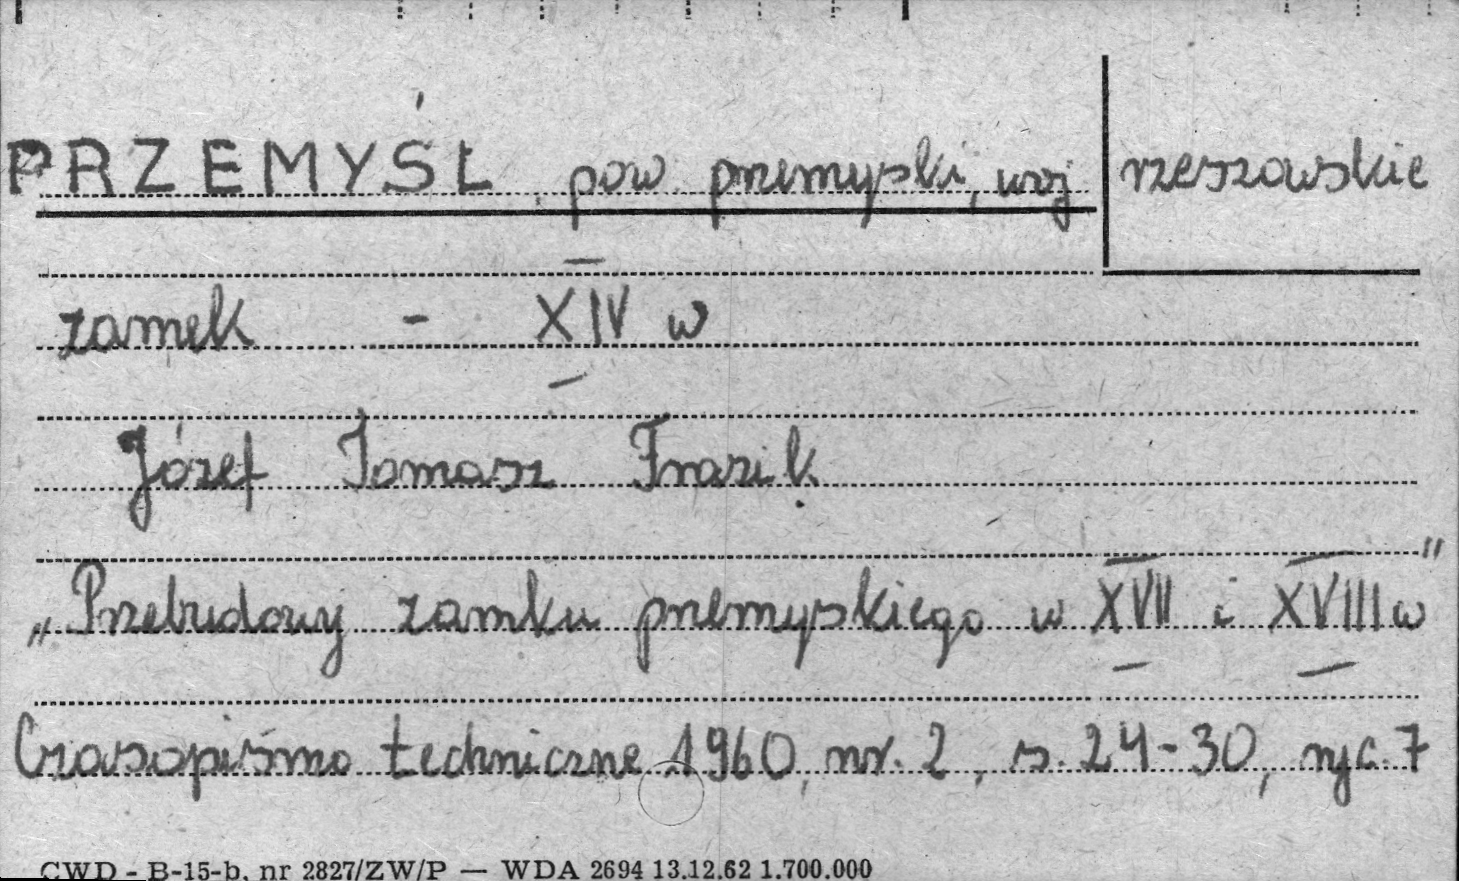 PRZEMYŚL, pow przemyski, woj rzeszowskie
zamek - XIV w
Józef Tomasz Frazik
„Przebudowy zamku przemyskiego w XVII i XVIII w"
Czasopismo techniczne 1960, nr. 2, s. 24-30, ryc. 7
CWD - B-15-b, nr 2827/ZW/P — WDA 2694 13.12.62 1.700.000